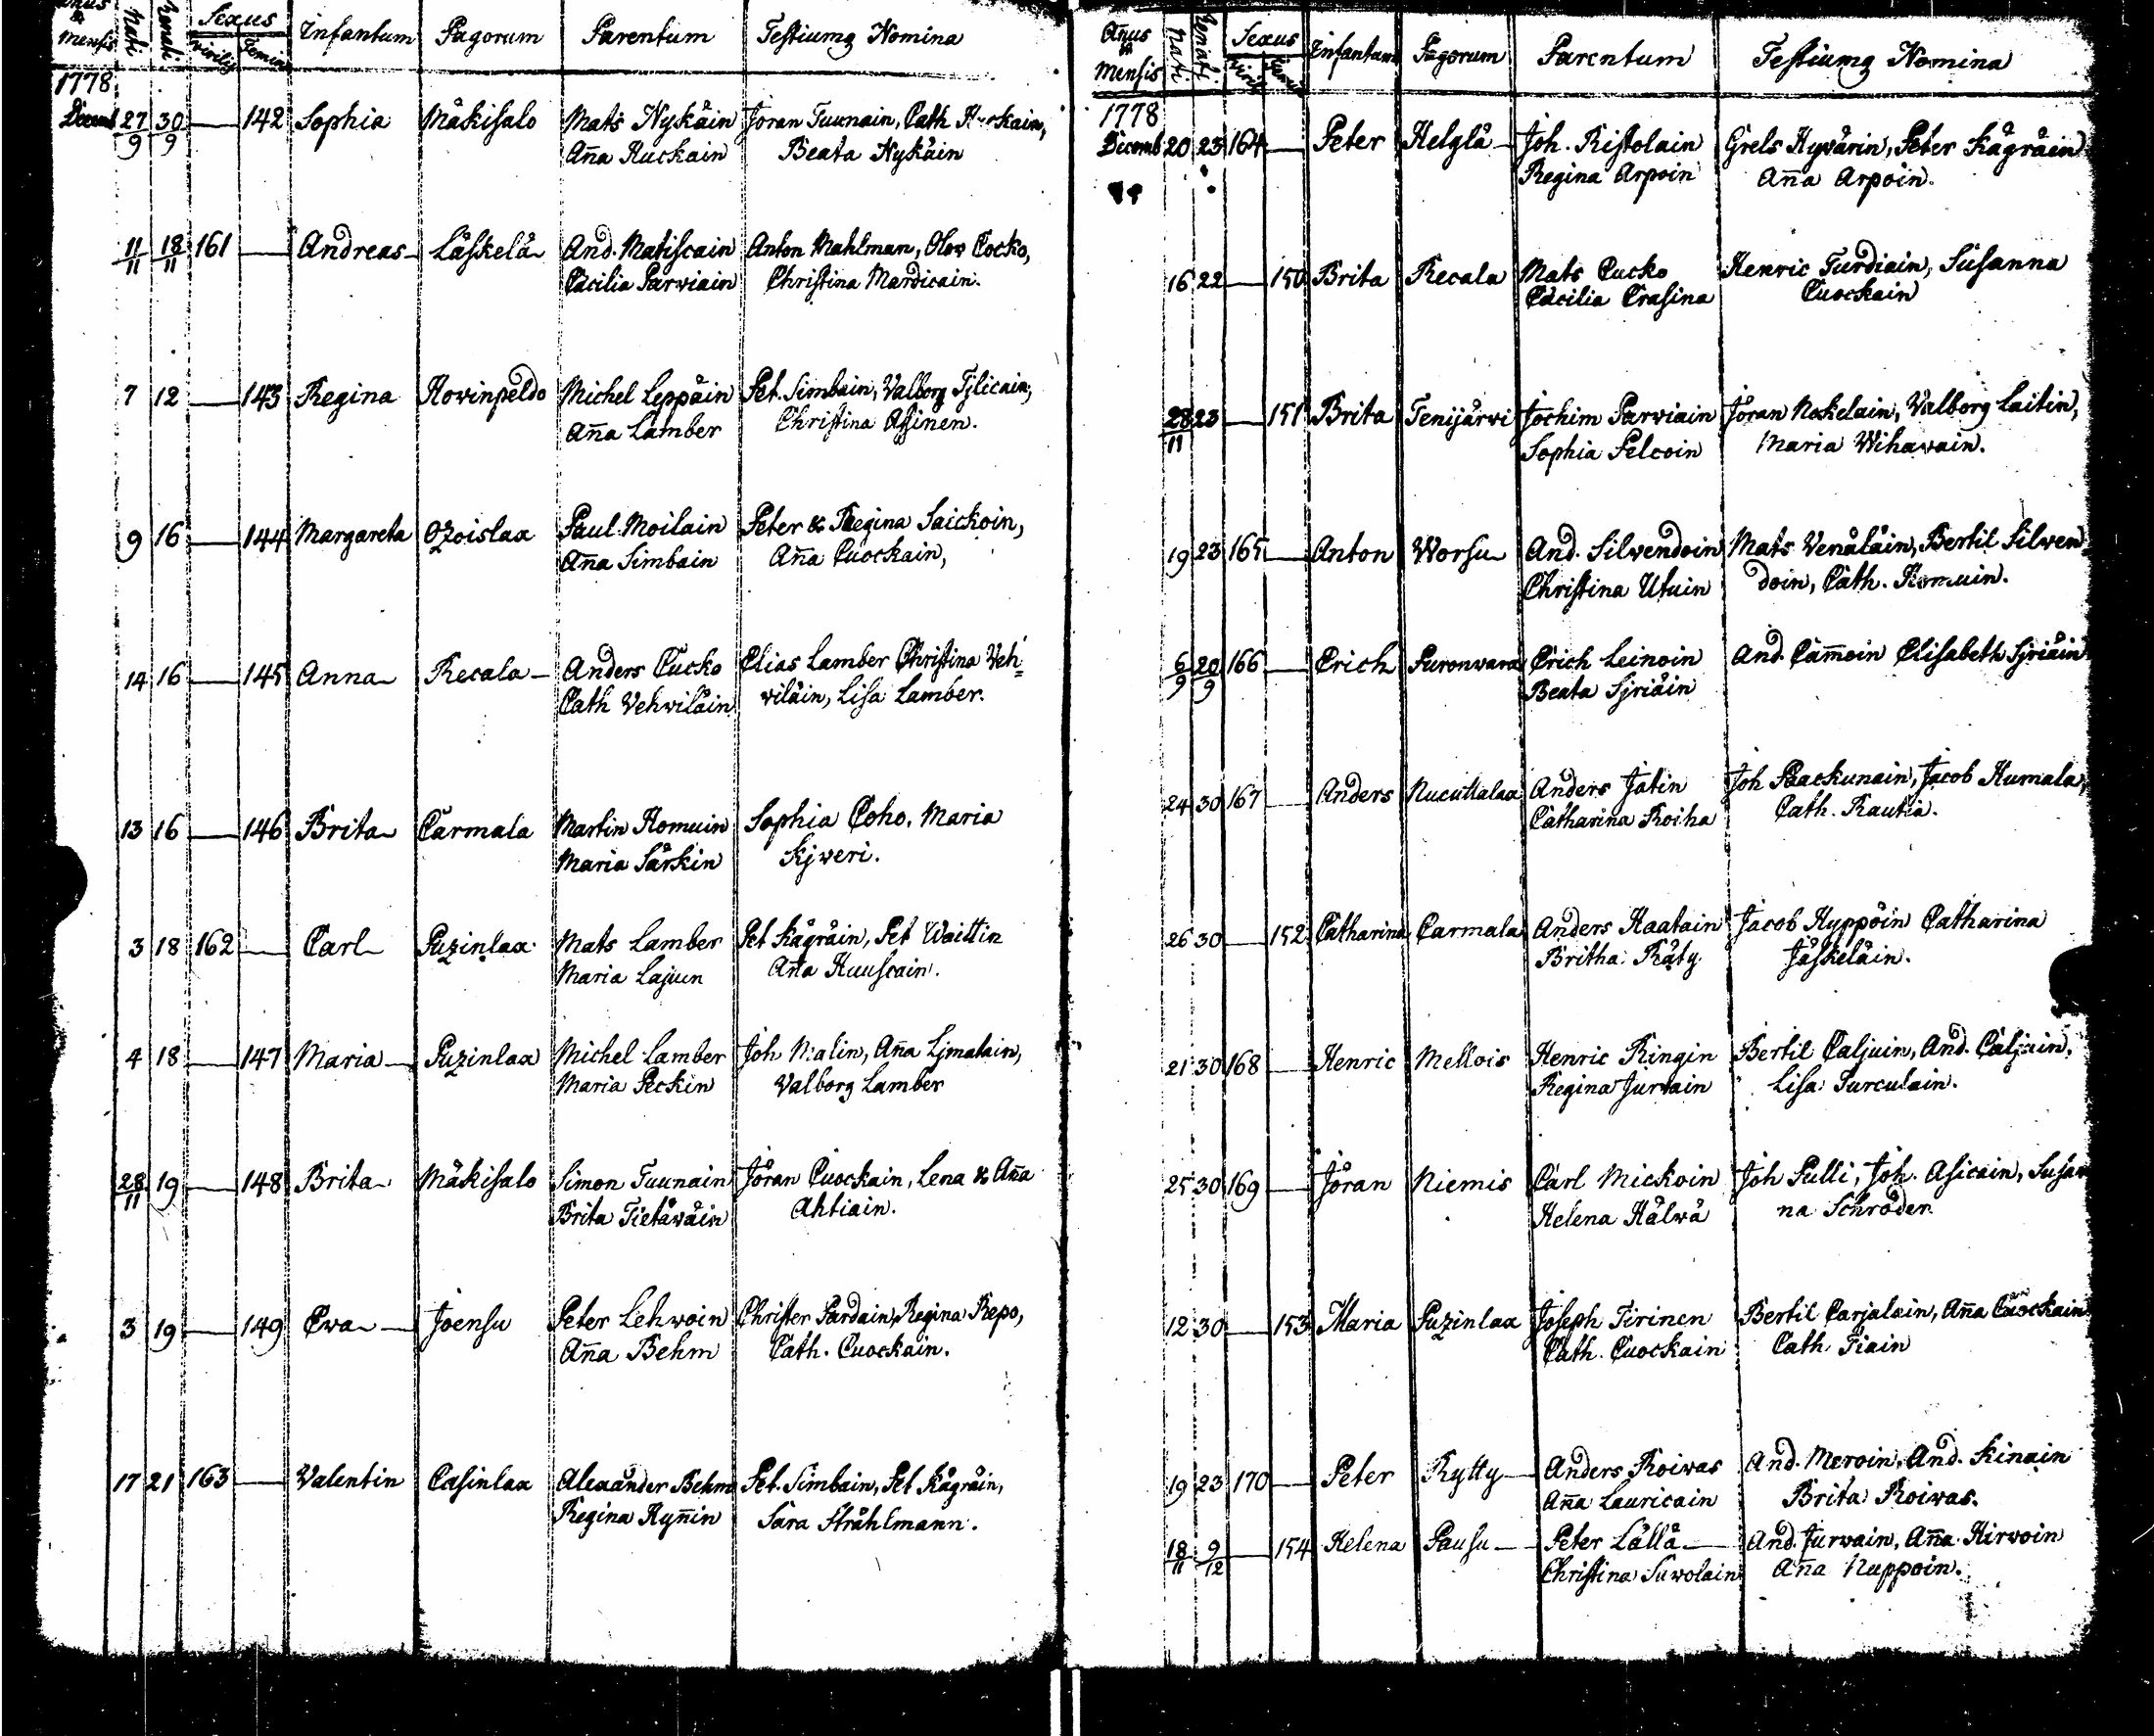 Anus & Mensis Nati Renati Sexus virilis femin Infantum Pagorum Parentum Testiumq Nomina
1778
Decemb 27/9 30/9 — 142 Sophia Mäkisalo Mats Nykäin Jöran Tuunain, Cath
Aña Huckain Beata Nykäin
11/11 18/11 161 — Andreas Läskelä And. Matiscain Anton Mahlman, Olov Cocko,
Cäcilia Parviain Christina Mardicain.
7 12 — 143 Regina Hovinpeldo Michel Leppäin Pet. Simbain, Valborg Tjlicain,
Aña Lamber Christina Assinen.
9 16 — 144 Margareta Ozoislax Paul Moilain Peter & Regina Saickoin,
Aña Simbain Aña Cuockain,
14 16 — 145 Anna Recala Anders Cucko Elias Lamber Christina Veh=
Cath Vehviläin viläin, Lisa Lamber.
13 16 — 146 Brita Carmala Martin Homuin Sophia Coho, Maria
Maria Särkin Kjveri.
3 18 162 — Carl Puzinlax Mats Lamber Pet Kägräin, Pet Waittin
Maria Lajuin Aña Huuscain.
4 18 — 147 Maria Puzinlax Michel Lamber Joh Malin, Aña Ljmatain,
Maria Peckin Valborg Lamber
28/11 19 — 148 Brita Mäkisalo Simon Tuunain Jöran Cuockain, Lena & Aña
Brita Tietäwäin Ahtiain.
3 19 — 149 Eva Joensu Peter Lehvoin Christer Pardain, Regina Repo,
Aña Behm Cath. Cuockain.
17 21 163 — Valentin Casinlax Alexander Behm Pet. Simbain, Pet Kägräin,
Regina Hyñin Sara Stråhlmann.
Añus & Mensis Nati Renati Sexus viril femin Infantum Pagorum Parentum Testiumq Nomina
1778
Decemb 20 23 164 — Peter Helglä Joh. Ristolain Grels Hyvärin, Peter Kägräin
Regina Arpoin Aña Arpoin.
16 22 — 150 Brita Recala Mats Cucko Henric Turdiain, Susanna
Cäcilia Erasina Cuockain
28/11 23 — 151 Brita Tenijärwi Jochim Parwiain Jöran Nokelain, Valborg Laitin,
Sophia Pelcoin Maria Wihavain.
19 23 165 — Anton Worsu And. Silvendoin Mats Venäläin, Bertil Silven
Christina Utuin doin, Cath. Homuin.
6/9 20/9 166 — Erich Puronwara Erich Leinoin And. Cam̄oin Elisabeth Sjriäin
Beata Sjriäin
24 30 167 — Anders Nucuttalax Anders Jatin Joh Paackunain, Jacob Humala,
Catharina Roiha Cath. Rautia.
26 30 — 152 Catharina Carmala Anders Haatain Jacob Hyppöin Catharina
Britha Räty. Jäskeläin.
21 30 168 — Henric Mellois Henric Ringin Bertil Caljuin, And. Caljuin,
Regina Jurvain Lisa Turculain.
25 30 169 — Jöran Niemis Carl Mickoin Joh Pulli, Joh. Asicain, Susan
Helena Hälvä na Schröder.
12 30 — 153 Maria Puzinlax Joseph Tirinen Bertil Carjalain, Aña Cuockain
Cath. Cuockain Cath Tiain
19 23 170 — Peter Rytty Anders Roivas And. Meroin, And. Kinain
Aña Lauricain Brita Roivas.
18/11 9/12 — 154 Helena Pausu Peter Lällä And. Jurvain, Aña Hirvoin
Christina Suvolain Aña Nuppoin.